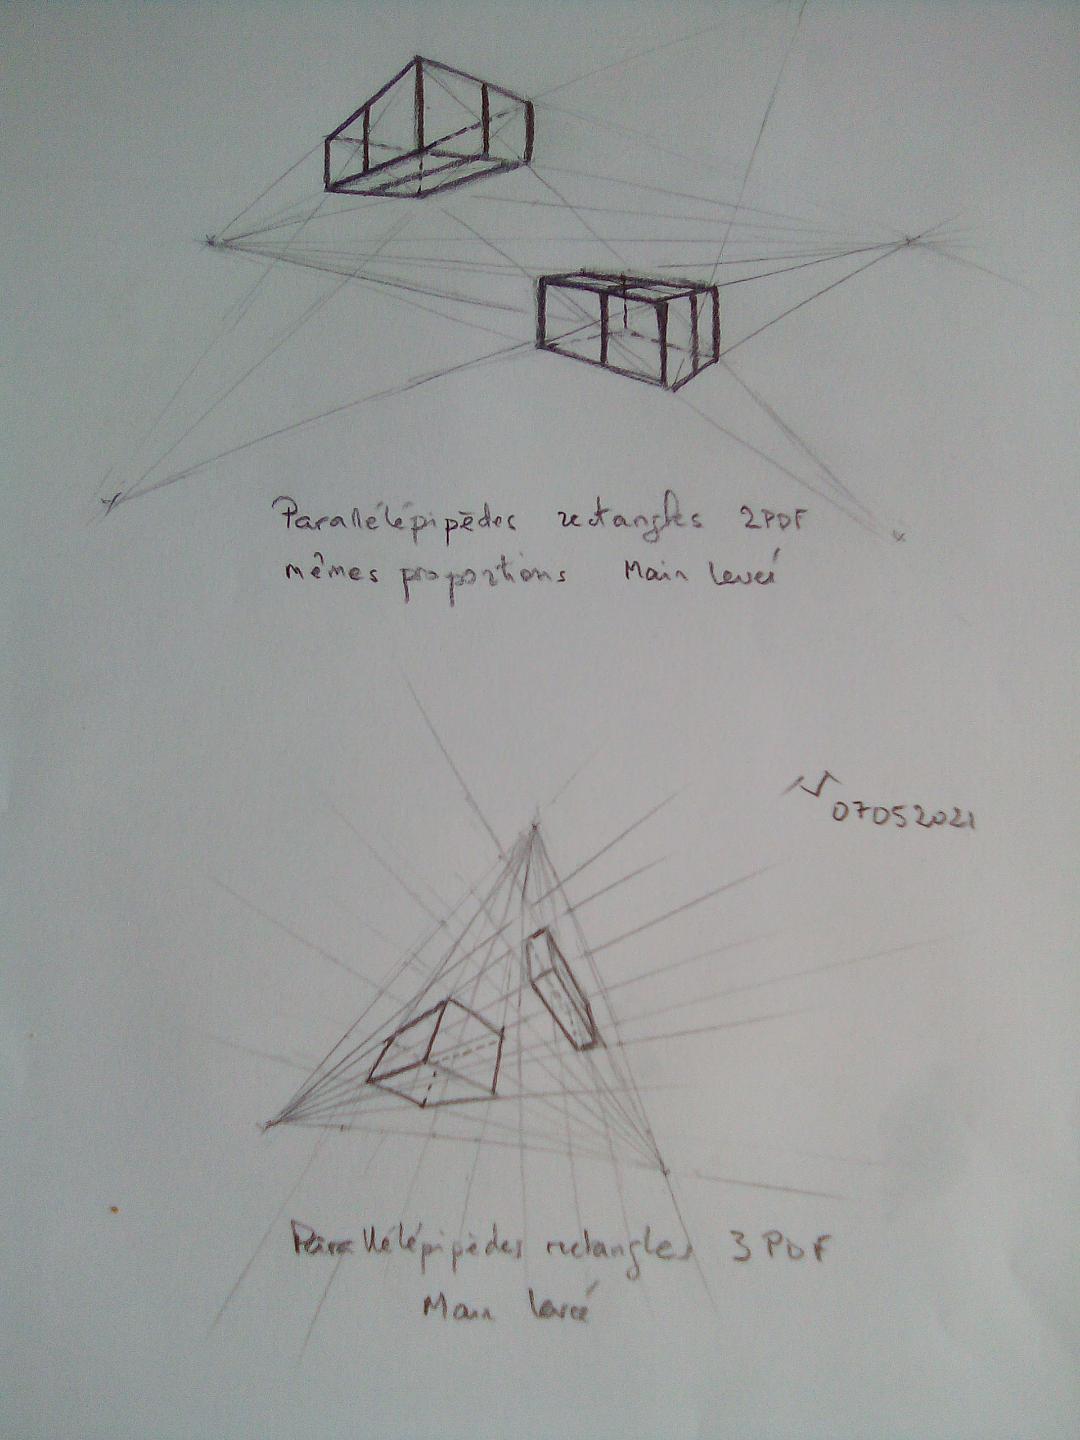 Parallélépipèdes rectangles 2PDF
mêmes proportions Main levée
07052021
Parallélépipèdes rectangles 3 PDF
Main levée